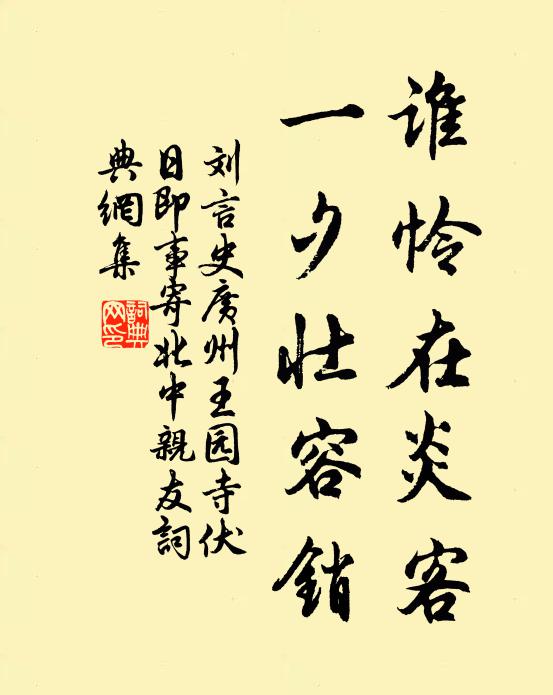 谁怜在炎客
一夕壮容銷
刘言史廣州王园寺伏
日即事寄北中親友詞
典網集
詞典
网印